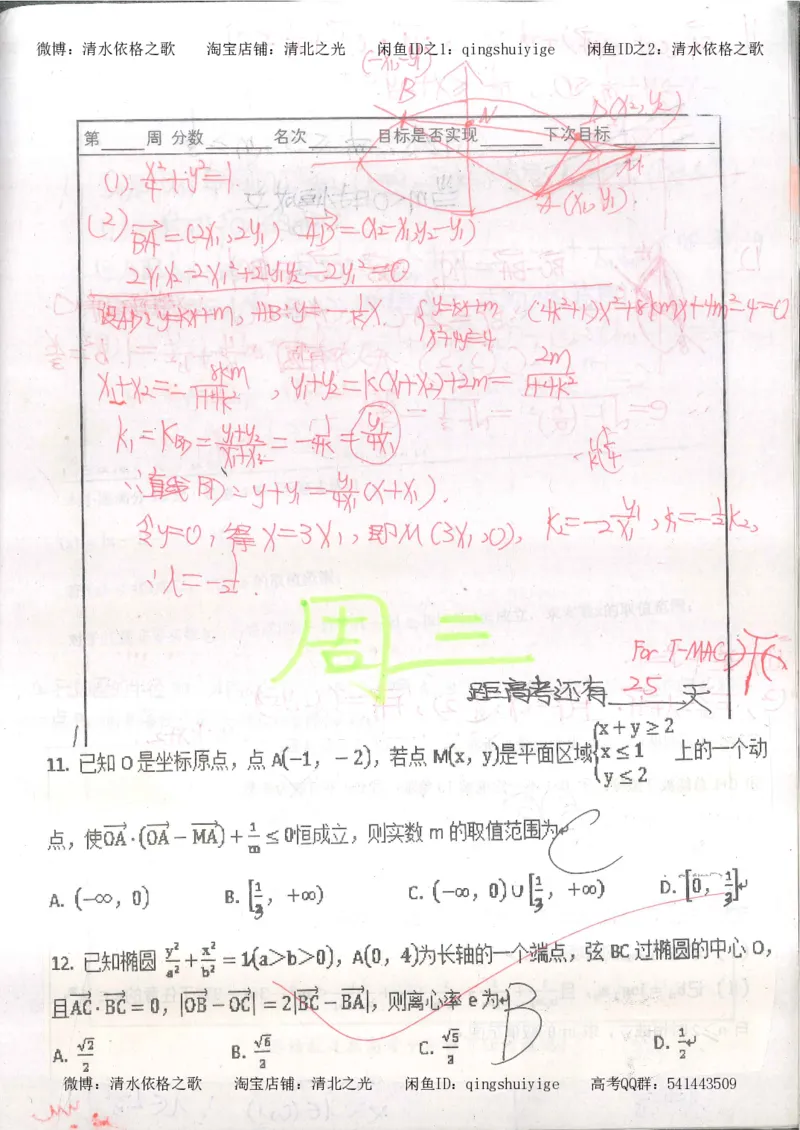 微博：清水依格之歌 淘宝店铺：清北之光 闲鱼ID之1：qingshuiyige 闲鱼ID之2：清水依格之歌
(-x₁,-y₁)
B
N
D(x₂,y₂)
第 周 分数 名次 目标是否实现 下次目标
M
A(x₁,y₁)
(1). x²/4+y²=1.
(2) BA=(2x₁,2y₁) AD=(x₂-x₁,y₂-y₁)
2x₁x₂-2x₁²+2y₁y₂-2y₁²=0
设AD: y=kx+m, AB: y=-1/k x. {y=kx+m x²+4y²=4 (4k²+1)x²+8kmx+4m²-4=0
x₁+x₂=-8km/1+4k², y₁+y₂=k(x₁+x₂)+2m=2m/1+4k²
k₁=k_BD=y₁+y₂/x₁+x₂=-1/4k=y₁/4x₁
∴直线BD~y+y₁=y₁/4x₁(x+x₁).
令y=0, 得x=3x₁, 即M(3x₁,0), k₂=-y₁/2x₁, k₁=-1/2k₂,
∴λ=-1/2.
周三
For T-MAC
距高考还有25天
11. 已知 O 是坐标原点，点 A(-1, -2)，若点 M(x, y)是平面区域{x+y≥2 x≤1 y≤2 上的一个动
点，使OA·(OA-MA)+1/m≤0恒成立，则实数 m 的取值范围为 C
A. (-∞, 0) B. [1/3, +∞) C. (-∞, 0)∪[1/3, +∞) D. [0, 1/3]
12. 已知椭圆 y²/a²+x²/b²=1(a>b>0)，A(0, 4)为长轴的一个端点，弦 BC 过椭圆的中心 O，
且AC·BC=0，|OB-OC|=2|BC-BA|，则离心率 e 为 B
A. √2/2 B. √6/3 C. √5/3 D. 1/2
微博：清水依格之歌 淘宝店铺：清北之光 闲鱼ID：qingshuiyige 高考QQ群：541443509